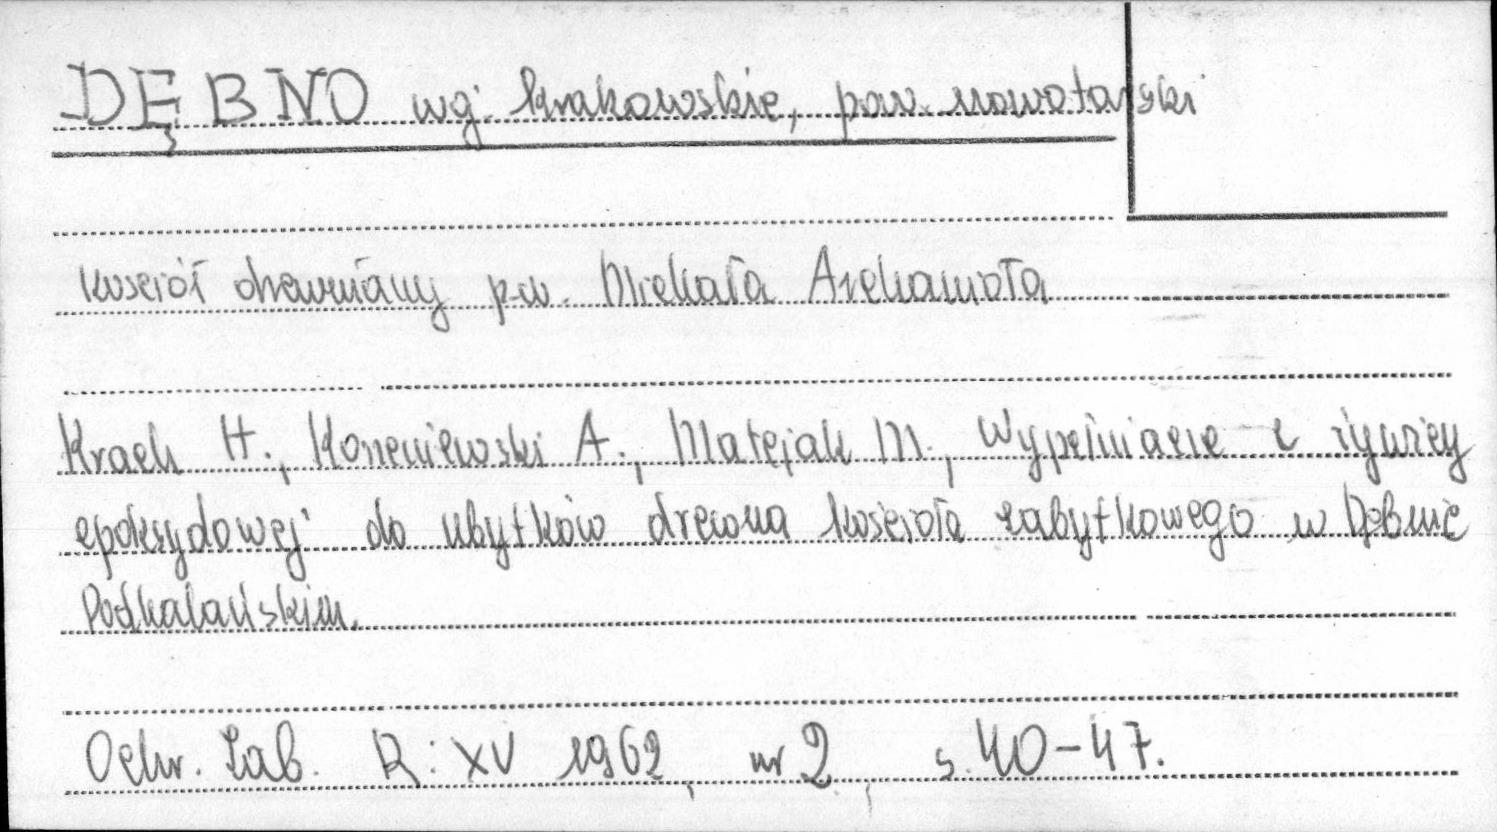 DĘBNO woj. krakowskie, pow. nowotarski
kościół drewniany p.w. Michała Archanioła
Krach H., Koszeniewski A., Matejak M., Wypełniacze z żywicy
epoksydowej do ubytków drewna kościoła zabytkowego w Dębnie
Podhalańskim.
Ochr. Zab. R: XV 1962, nr 2, s. 40-47.